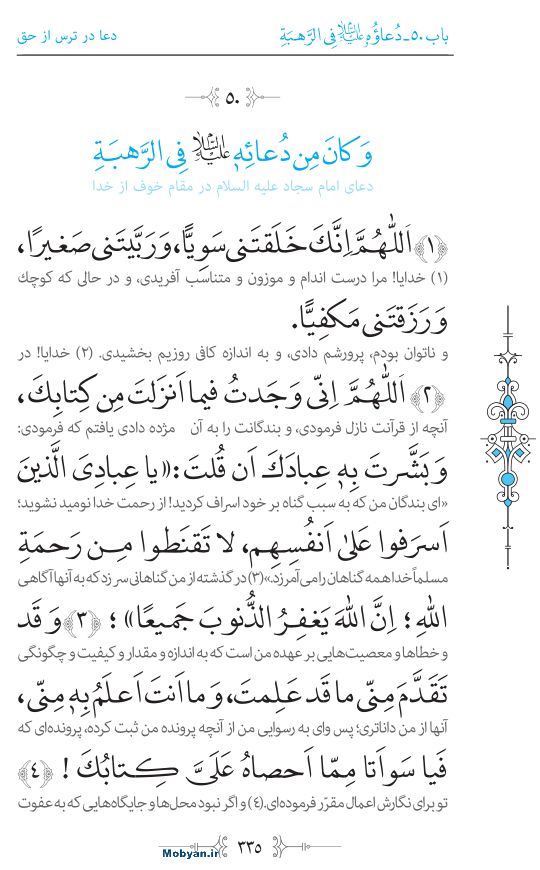 باب ۵۰ـ دُعاؤُهُ عليه‌السلام فِى الرَّهبَةِ
دعا در ترس از حق
۵۰
وَ كانَ مِن دُعائِهِ عليه‌السلام فِى الرَّهبَةِ
دعای امام سجاد علیه السلام در مقام خوف از خدا
﴿۱﴾ اَللّٰهُمَّ اِنَّكَ خَلَقتَنى سَوِيًّا، وَ رَبَّيتَنى صَغيرًا،
(۱) خدایا! مرا درست اندام و موزون و متناسب آفریدی، و در حالی که کوچک
وَ رَزَقتَنى مَكفِيًّا.
و ناتوان بودم، پرورشم دادی، و به اندازه کافی روزیم بخشیدی. (۲) خدایا! در
﴿۲﴾ اَللّٰهُمَّ اِنّى وَجَدتُ فيما اَنزَلتَ مِن كِتابِكَ،
آنچه از قرآنت نازل فرمودی، و بندگانت را به آن مژده دادی یافتم که فرمودی:
وَ بَشَّرتَ بِهِ عِبادَكَ اَن قُلتَ: «يا عِبادِىَ الَّذينَ
«ای بندگان من که به سبب گناه بر خود اسراف کردید! از رحمت خدا نومید نشوید؛
اَسرَفوا عَلىٰ اَنفُسِهِم، لا تَقنَطوا مِن رَحمَةِ
مسلماً خدا همه گناهان را می‌آمرزد.» (۳) در گذشته از من گناهانی سر زد که به آنها آگاهی
اللهِ؛ اِنَّ اللهَ يَغفِرُ الذُّنوبَ جَميعًا»؛ ﴿۳﴾ وَ قَد
و خطاها و معصیت‌هایی بر عهده من است که به اندازه و مقدار و کیفیت و چگونگی
تَقَدَّمَ مِنّى ما قَد عَلِمتَ، وَ ما اَنتَ اَعلَمُ بِهِ مِنّى،
آنها از من داناتری؛ پس وای به رسوایی من از آنچه پرونده من ثبت کرده، پرونده‌ای که
فَيا سَواَتا مِمّا اَحصاهُ عَلَىَّ كِتابُكَ! ﴿۴﴾
تو برای نگارش اعمال مقرّر فرموده‌ای. (۴) و اگر نبود محل‌ها و جایگاه‌هایی که به عفوت
۳۳۵
Mobyan.ir